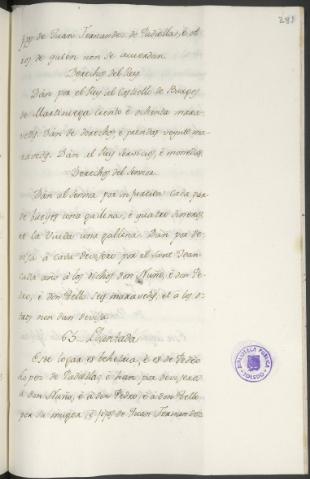 281
fijos de Juan Fernandez de Padiella, è ot
ros de quien non se acuerdan.
Derechos del Rey
Dán por el Rey al Castillo de Burgos
de Martiniega ciento è ochenta mara
vedis. Dán de derechos, è prendas seys ms ma
ravedis. Dan al Rey servicios, è monedas.
Derechos del Señor
Dán al Señor por infurcion Cada par
de bueyes una gallina, è quatro dineros,
et la viuda una gallina. Dán por de
visa à cada devisero por el Sant Joan
cada año à los dichos don Nuño, è don Pe
dro, è don Tello seys maravedis, et à los ot
ros non dan devisa.
63. Plantada
Este logar es behetria, è es de Pedro
Lopez de Padiella, è han por deviseros
à don Nuño, è à don Pedro, è à don Tello
por su muger, è fijos de Juan Fernandez
BIBLIOTECA PUBLICA
TOLEDO